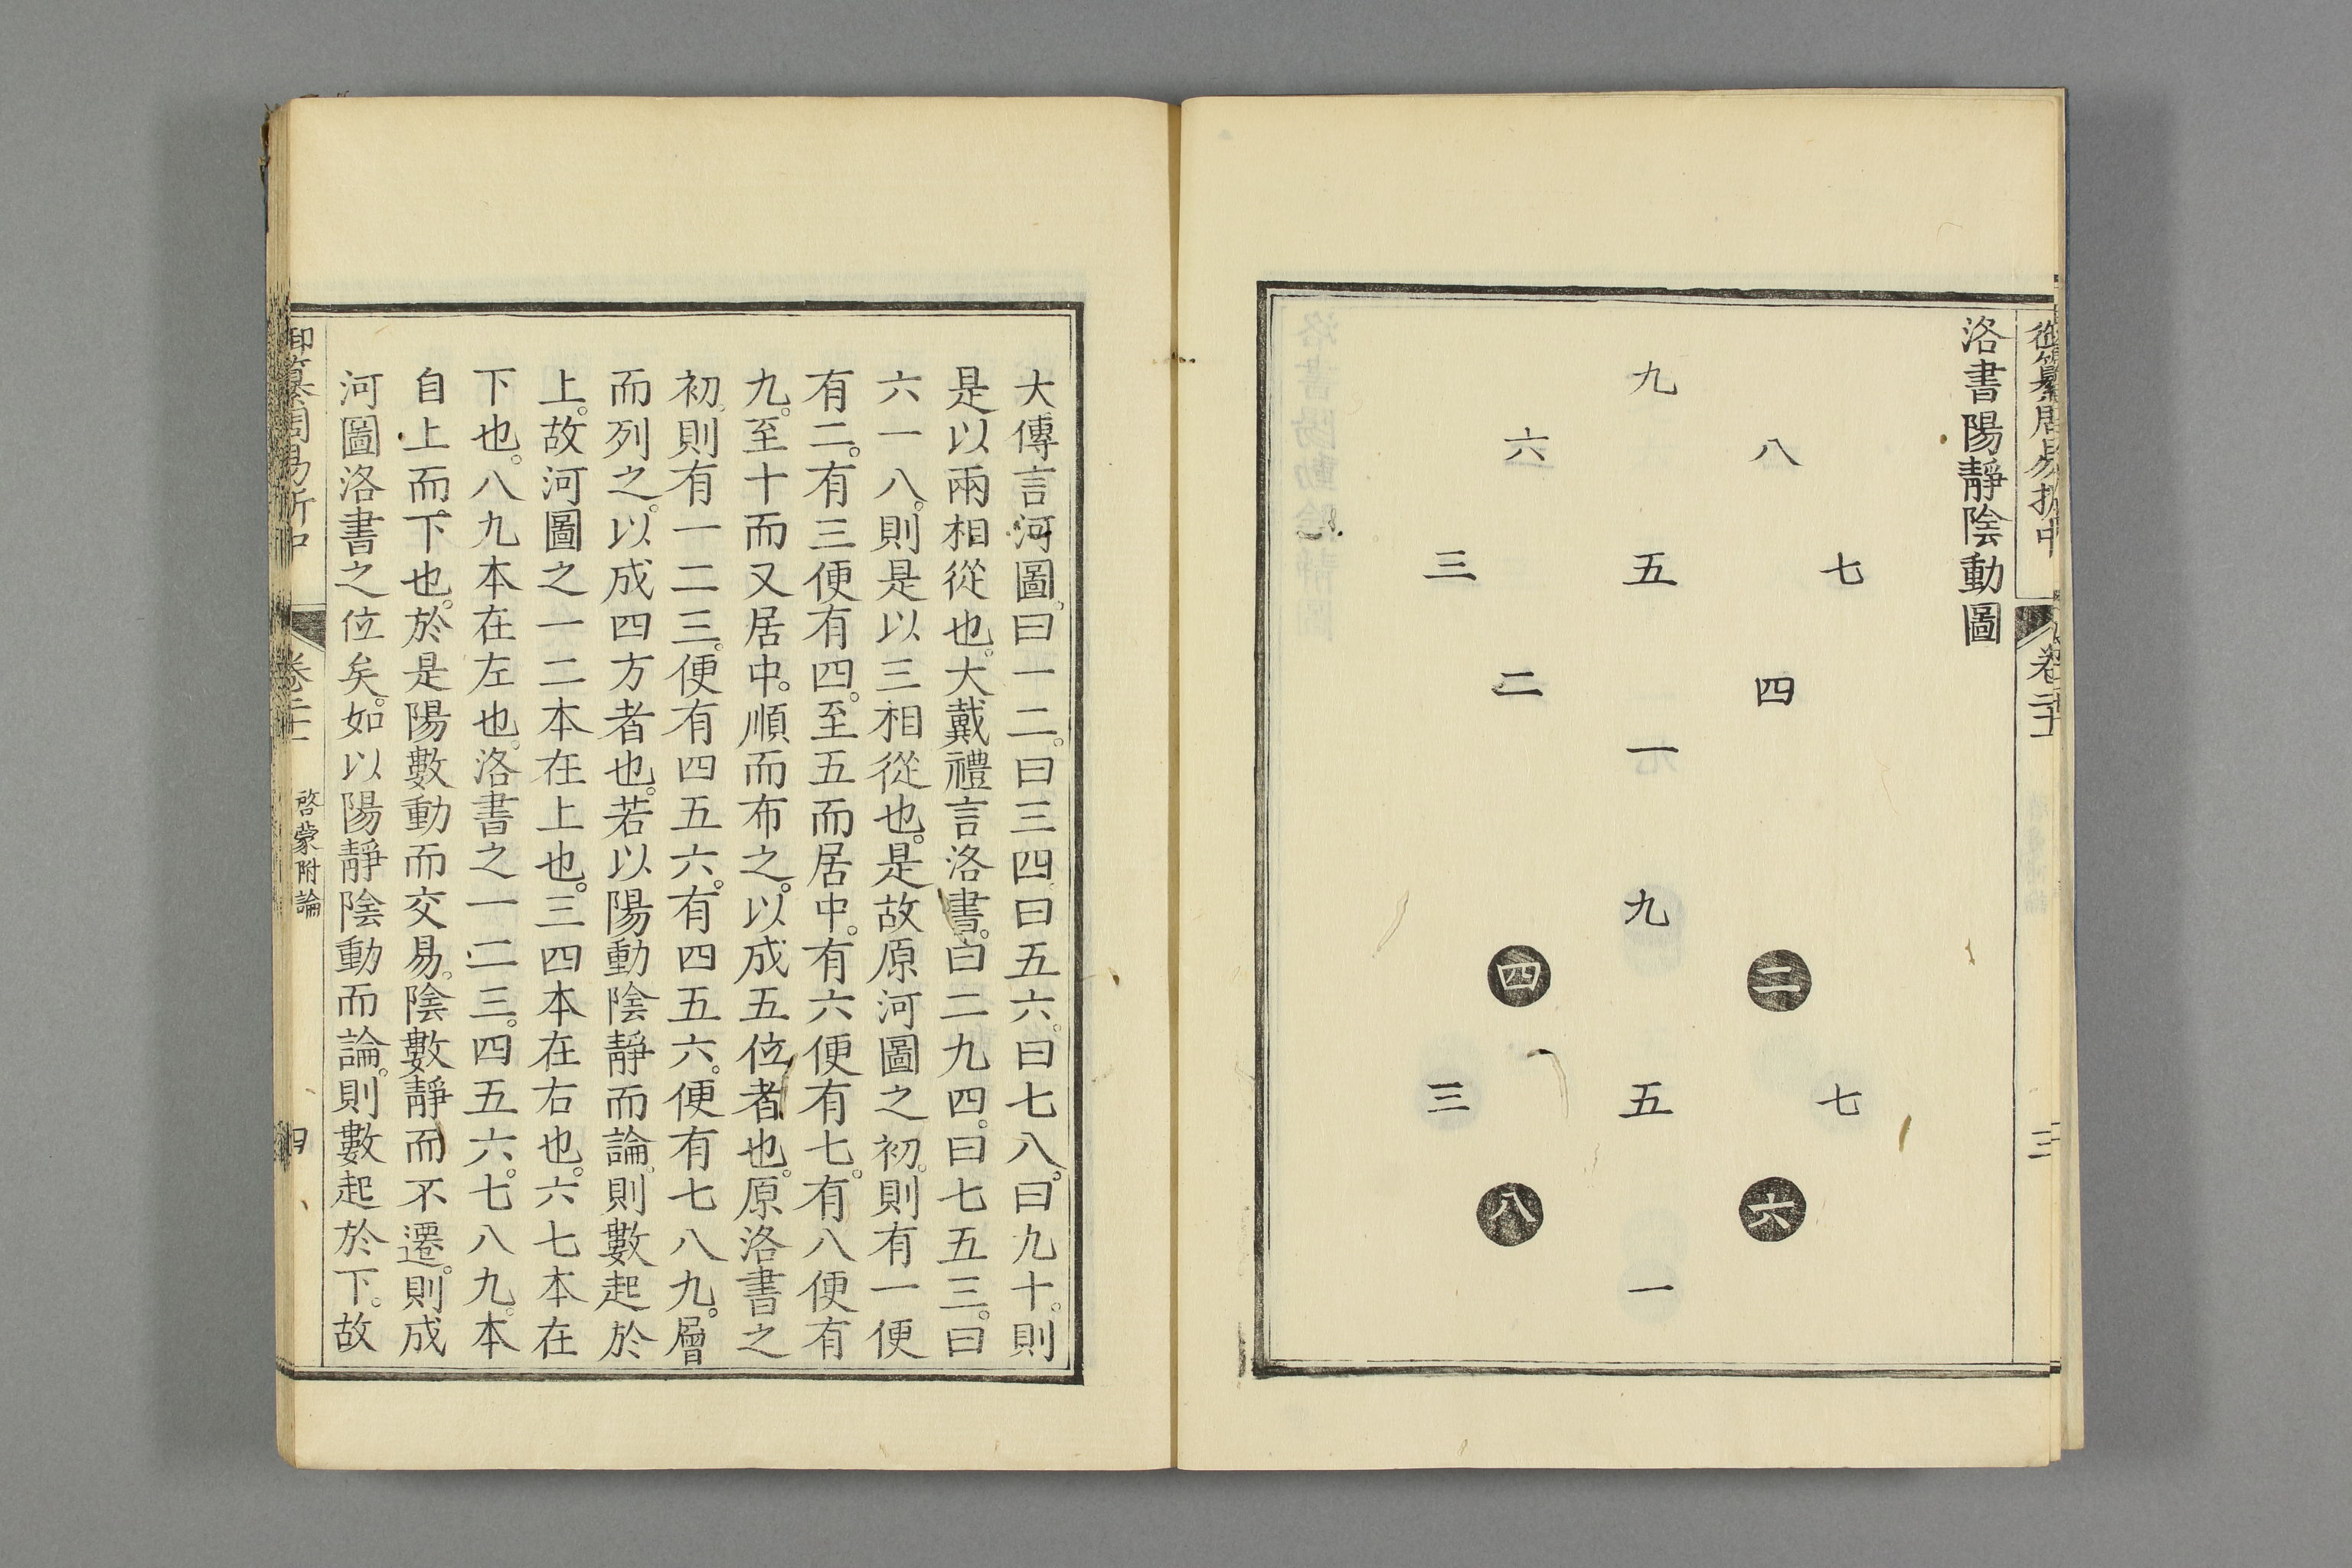 御纂周易折中 卷二十一 三
洛書陽靜陰動圖
九
六 八
三 五 七
二 四
一
九
四 二
三 五 七
八 六
一
大傳言河圖。曰一二。曰三四。曰五六。曰七八。曰九十。則
是以兩相從也。大戴禮言洛書。白二九四。曰七五三。曰
六一八。則是以三相從也。是故原河圖之初。則有一便
有二。有三便有四。至五而居中。有六便有七。有八便有
九。至十而又居中。順而布之。以成五位者也。原洛書之
初。則有一二三。便有四五六。有四五六。便有七八九。層
而列之。以成四方者也。若以陽動陰靜而論。則數起於
上。故河圖之一二本在上也。三四本在右也。六七本在
下也。八九本在左也。洛書之一二三。四五六。七八九。本
自上而下也。於是陽數動而交易。陰數靜而不遷。則成
河圖洛書之位矣。如以陽靜陰動而論。則數起於下。故
御纂周易折中 卷二十一 啓蒙附論 四